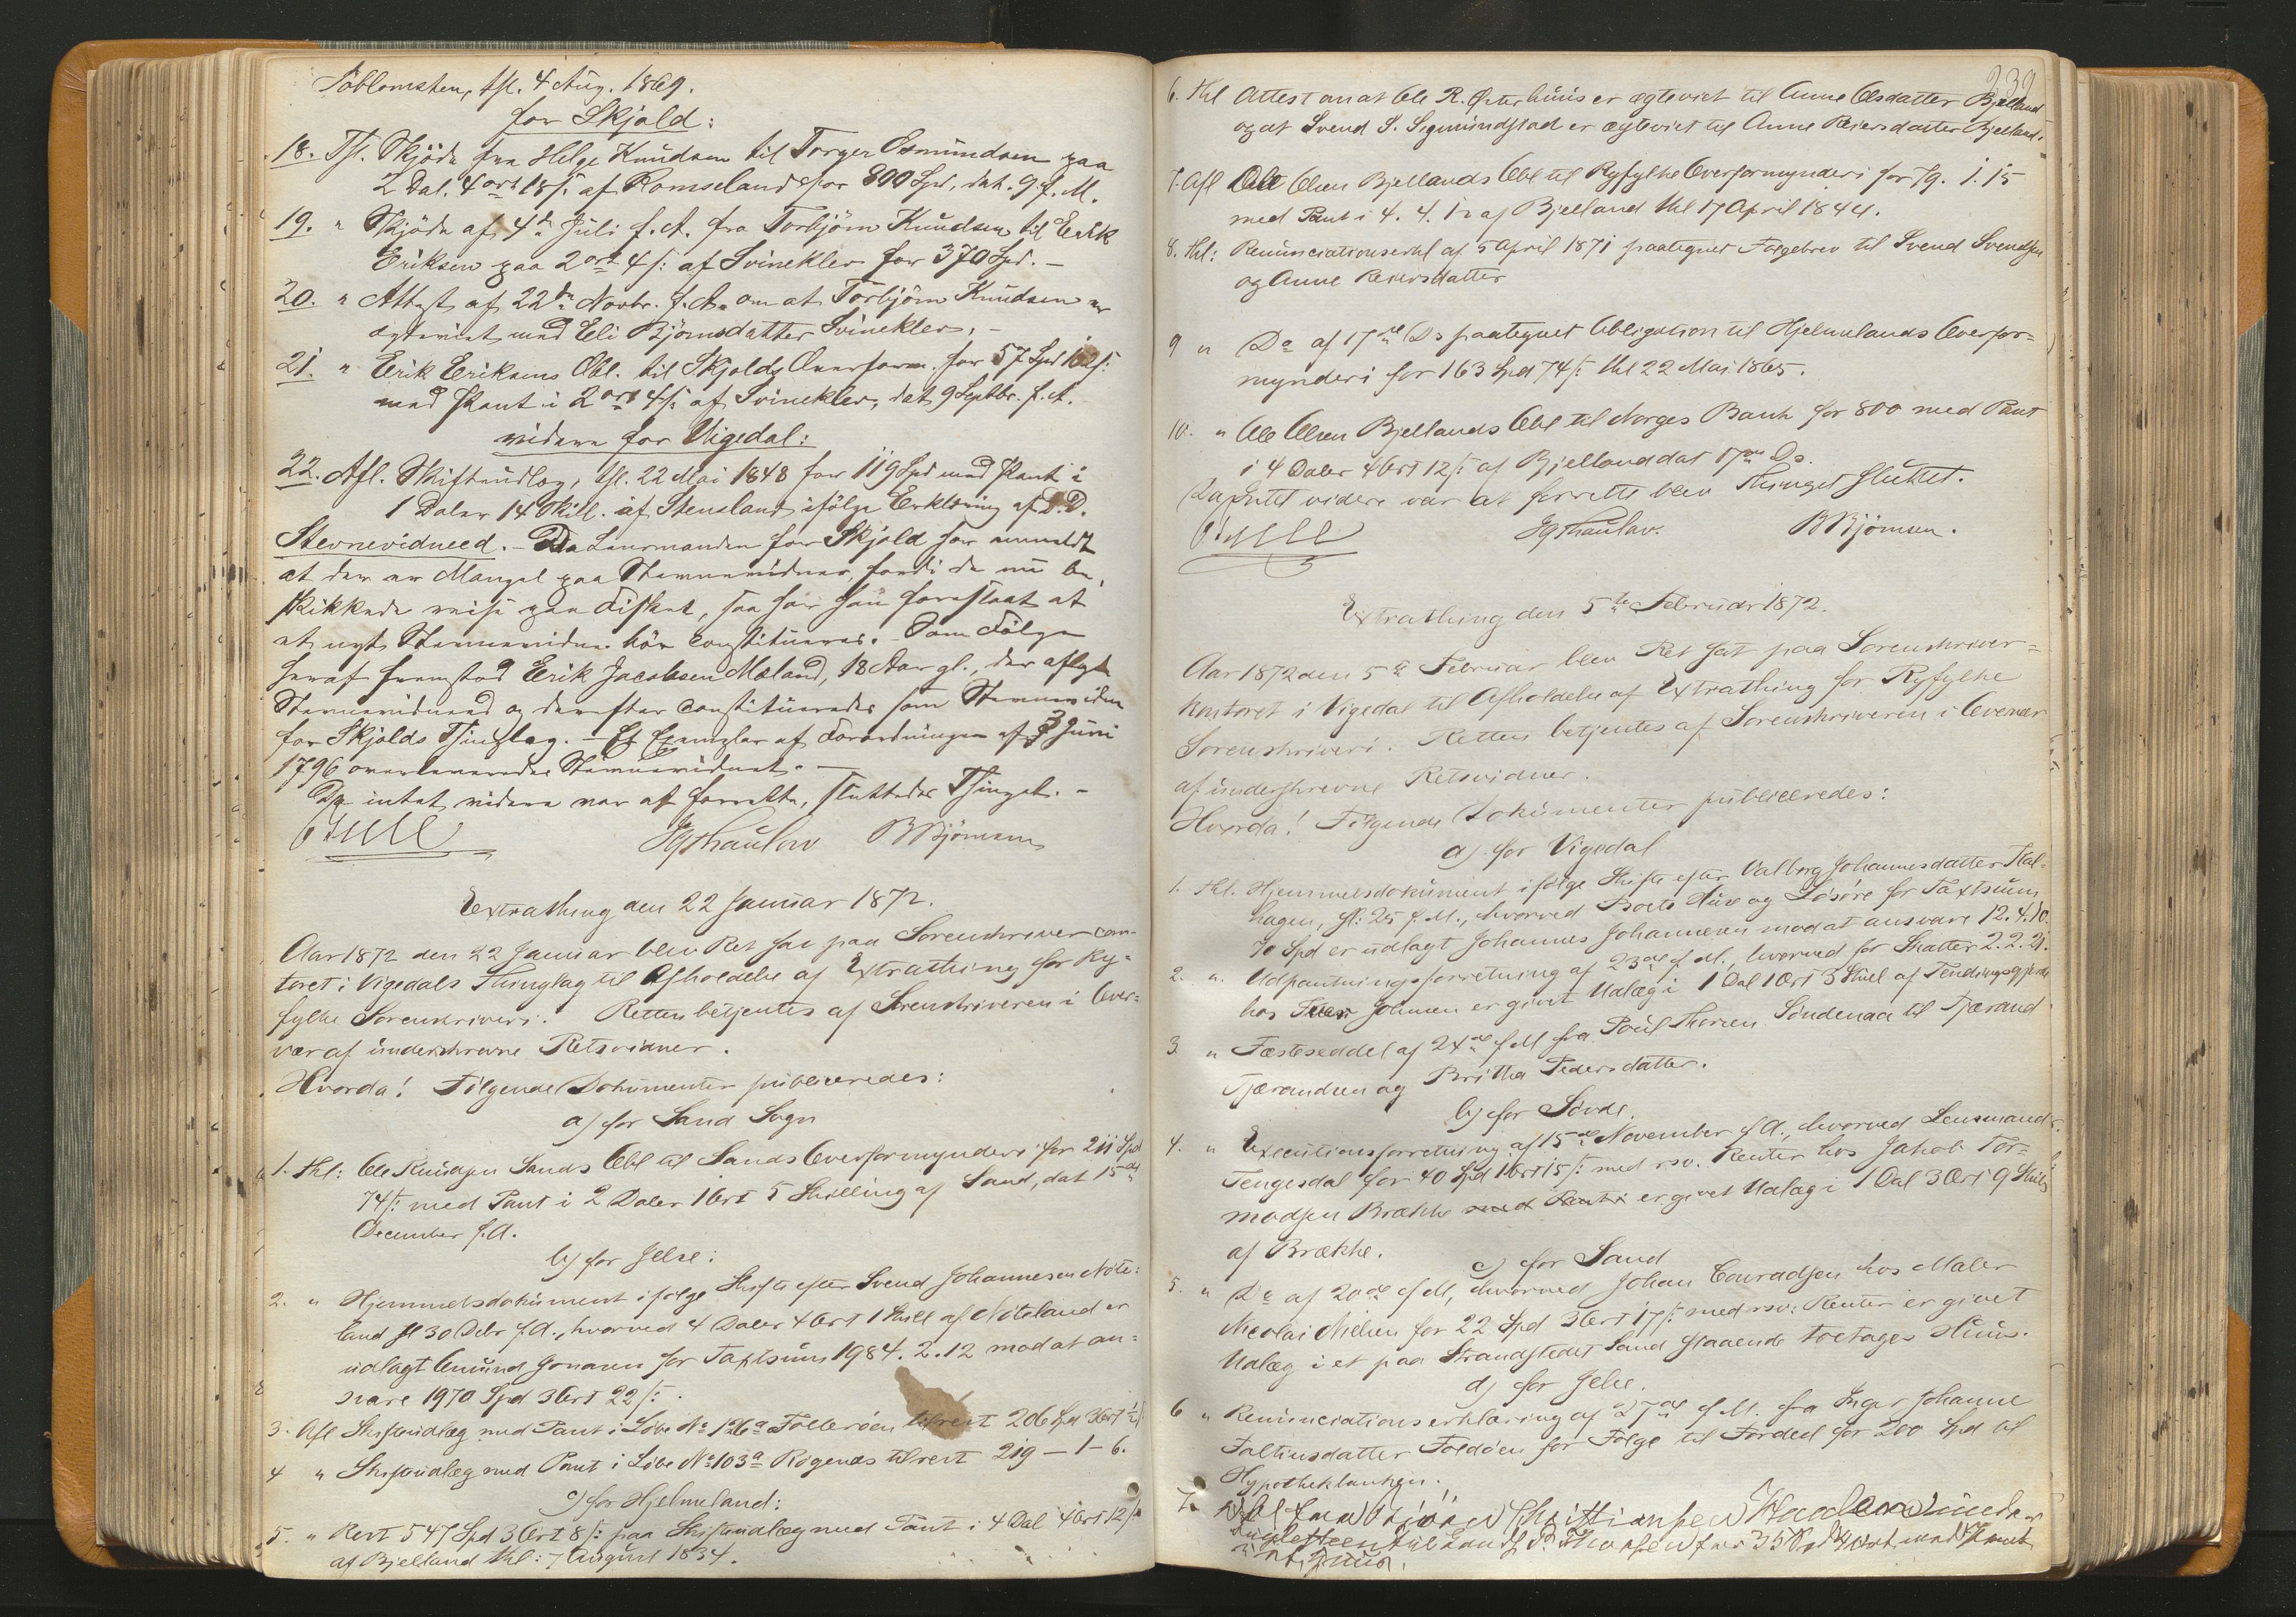 Töblomsten, thl. 4 Aug. 1869.
for Skjold:
18. Thl. Skjöde fra Helge Knudsen til Torger Osmundsen paa
2 Dal. 4 ort 18 s. af Romseland for 800 Spd, dat. 9 f. M.
19. " Skjöde af 4de Juli f.A. fra Torbjörn Knudsen til Erik
Eriksen paa 2 ort 4 s: af Svinekler for 370 Spd. -
20. " Attest af 22de Novbr. f.A. om at Torbjörn Knudsen er
ægteviet med Eli Björnsdatter Svinekler. -
21. " Erik Eriksens Obl. til Skjolds Overform. for 57 Spd 102 s:
med Pant i 2 ort 4 s: af Svinekler, dat 9 Septbr. f.A.
videre for Vigedal:
22. Afl. Skifteudlæg, thl. 22 Mai 1848 for 119 Spd med Pant i
1 Daler 14 Skill. af Stensland ifölge Erklæring af D.D.
Stevnevidneed. - Da Lensmanden for Skjold har anmeldt
at der er Mangel paa Stevnevidner, fordi de nu be-
skikkede reise paa Fiskeri, saa har han foreslaaet at
et nyt Stevnevidne bör constitueres. - Som Fölge
heraf fremstod Erik Jacobsen Mæland, 18 Aar gl., der aflagde
Stevnevidneed og derefter constitueredes som Stevnevidne
for Skjolds Thinglag. - Et Exemplar af Forordningen af 3 Juni
1796 overleveredes Stevnevidnet. -
Da intet videre var at forrette, sluttedes Thinget. -
JgThaulow BBjörnsen
Extrathing den 22 Januar 1872.
Aar 1872 den 22 Januar blev Ret sat paa Sorenskrivercon-
toret i Vigedals Thinglag til Afholdelse af Extrathing for Ry-
fylke Sorenskriveri. Retten betjentes af Sorenskriveren i Over-
vær af underskrevne Retsvidner.
Hvorda! Fölgende Dokumenter publiceredes:
a) for Sand Sogn
1. Thl: Ole Knudsen Sands Obl til Sands Overformynderi for 211 Spd
74 s: med Pant i 2 Daler 1 Ort 5 Skilling af Sand, dat 15de
December f.A.
b) for Jelse:
2. " Hjemmelsdokument ifölge Skifte efter Svend Johannesen Nöte-
land sl 30 Debr f.A., hvorved 4 Daler 4 Ort 1 Skill af Nöteland er
udlagt Amund Jonasen for Taxtsum 1984. 2. 12 mod at an-
svare 1970 Spd 3 Ort 22 s:.
3. Afl Skifteudlæg med Pant i Löbe No 126a Folleröen tilrest 206 Spd 3 Ort
4 " Skifteudlæg med Pant i Löbe No 103a Rögenæs tilrest 219 - 1 - 6.
c) for Hjelmeland:
5. " Rest 547 Spd 3 Ort 8 s: paa Skifteudlæg med Pant i 4 Dal 4 Ort 12 s
af Bjelland thl: 7 August 1834.
239
6. Thl Attest om at Ole R. Østerhuus er ægteviet til Anne Olsdatter Bjelland
og at Svend S. Sigmundstad er ægteviet til Anne Reiersdatter Bjelland.
7. Afl Ole Olsen Bjellands Obl til Ryfylke Overformynderi for 79. 1. 15
med Pant i 4. 4. 12 af Bjelland thl 17 April 1844.
8. thl: Renunciationserkl af 5 April 1871 paategnet Fölgebrev til Svend Svendsen
og Anne Reiersdatter
9 " Do af 17de Ds paategnet Obligation til Hjelmelands Overfor-
mynderi for 163 Spd 74 s: thl 22 Mai 1865.
10. " Ole Olsen Bjellands Obl til Norges Bank for 800 med Pant
i 4 Daler 4 Ort 12 s: af Bjelland dat 17de Ds.
Da Intet videre var at forrette blev Thinget sluttet.
JgThaulow. BBjörnsen.
Extrathing den 5te Februar 1872.
Aar 1872 den 5te Februar blev Ret sat paa Sorenskriver-
kontoret i Vigedal til Afholdelse af Extrathing for Ryfylke
Sorenskriveri. Retten betjentes af Sorenskriveren i Overvær
af underskrevne Retsvidner.
Hvorda! Fölgende Dokumenter publiceredes:
a) for Vigedal
1. thl. Hjemmelsdokument ifölge Skifte efter Valborg Johannesdatter
hagen, sl: 25 f.M., hvorved Boets Huse og Lösöre for Taxtsum
70 Spd er udlagt Johannes Johannesen mod at ansvare 12. 4. 10.
2. " Udpantningsforretning af 23de f.M., hvorved for Skatter 2. 2. 21.
hos Iver Johnsen er givet Udlæg i 1 Dal 1 Ort 3 Skill af
3. " Fæsteseddel af 24de f M fra Poul Thorsen Söndenaa til Tjærand
Tjærandsen og Britha Pedersdatter.
b) for Sövde.
4. " Executionsforretning af 15de November f.A., hvorved Lensmand
Tengesdal for 40 Spd 1 Ort 15 s: med rsv. Renter hos Jakob Tor-
modsen Brække med Pant i er givet Udlæg i 1 Dal 3 Ort 9 Skill
af Brække.
c) for Sand
5. " Do af 20de f M, hvorved Johan Conradsen hos Maler
Nicolai Nielsen for 22 Spd 3 Ort 17 s: med rsv: Renter er givet
Udlæg i et paa Strandstedet Sand staaende toetages Huus.
d) for Jelse.
6 " Renunciationserklæring af 27de f.M. fra Inger Johanne
Faltinsdatter Foldöen for Fölge til Fordel for 200 Spd til
Hypothekbanken.
7.
for 35 Spd 4 ort med Pant